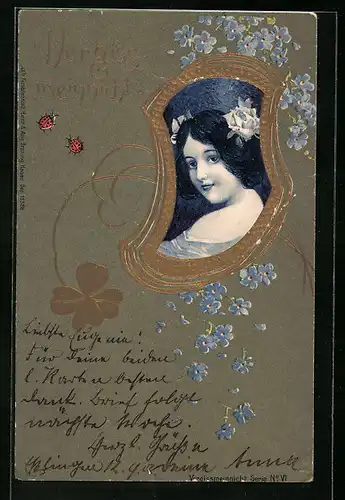 Vergiss
mein nicht!
Liebste Eugenie!
Für Deine beiden
l. Karten besten
Dank. Brief folgt
nächste Woche.
Herzl. Grüße
Anna
Vergissmeinnicht, Serie No VI